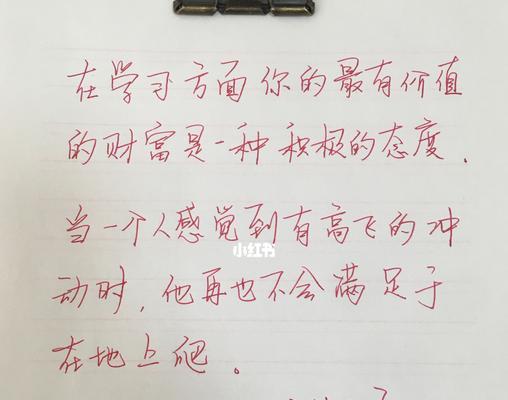 在学习方面你的最有价值
的财富是一种积极的态度.
当一个人感觉到有高飞的冲
小红书
动时,他再也不会满足于
在地上爬。